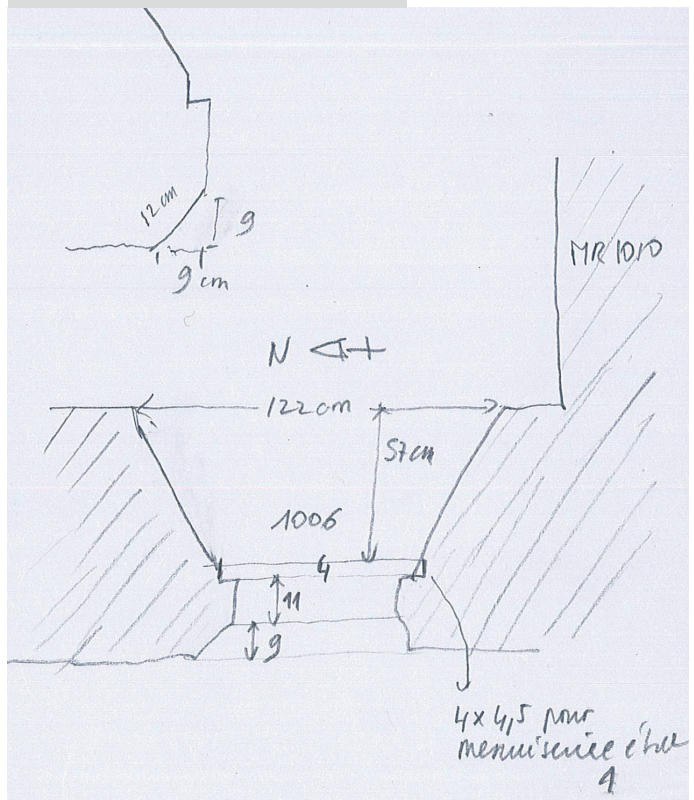 12 cm
9
9 cm
MR 1010
N
122 cm
57 cm
1006
4
11
9
4 x 4,5 pour
menuiserie état
1